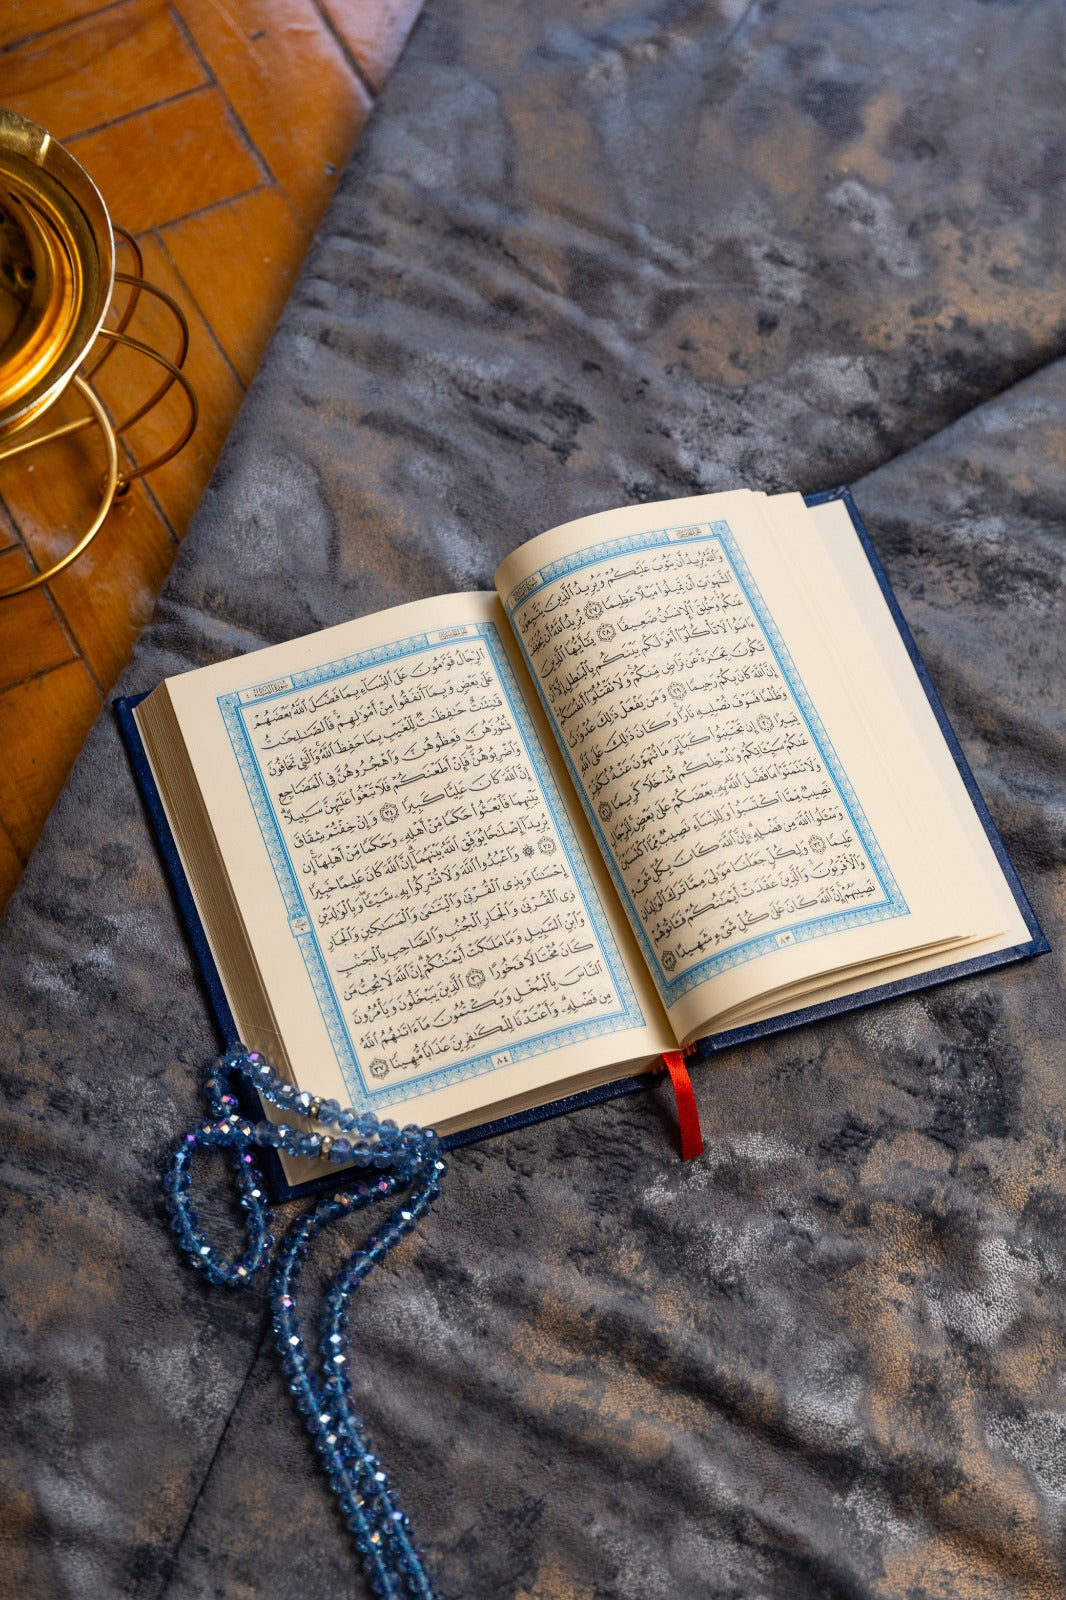 سُورَةُ النِّسَاءِ
وَٱللَّهُ يُرِيدُ أَن يَتُوبَ عَلَيْكُمْ وَيُرِيدُ ٱلَّذِينَ يَتَّبِعُونَ
ٱلشَّهَوَٰتِ أَن تَمِيلُوا۟ مَيْلًا عَظِيمًا ٢٧ يُرِيدُ ٱللَّهُ أَن يُخَفِّفَ
عَنكُمْ وَخُلِقَ ٱلْإِنسَٰنُ ضَعِيفًا ٢٨ يَٰٓأَيُّهَا ٱلَّذِينَ
ءَامَنُوا۟ لَا تَأْكُلُوٓا۟ أَمْوَٰلَكُم بَيْنَكُم بِٱلْبَٰطِلِ إِلَّآ أَن
تَكُونَ تِجَٰرَةً عَن تَرَاضٍ مِّنكُمْ وَلَا تَقْتُلُوٓا۟ أَنفُسَكُمْ
إِنَّ ٱللَّهَ كَانَ بِكُمْ رَحِيمًا ٢٩ وَمَن يَفْعَلْ ذَٰلِكَ عُدْوَٰنًا
وَظُلْمًا فَسَوْفَ نُصْلِيهِ نَارًا وَكَانَ ذَٰلِكَ عَلَى ٱللَّهِ
يَسِيرًا ٣٠ إِن تَجْتَنِبُوا۟ كَبَآئِرَ مَا تُنْهَوْنَ عَنْهُ نُكَفِّرْ
عَنكُمْ سَيِّـَٔاتِكُمْ وَنُدْخِلْكُم مُّدْخَلًا كَرِيمًا ٣١
وَلَا تَتَمَنَّوْا۟ مَا فَضَّلَ ٱللَّهُ بِهِۦ بَعْضَكُمْ عَلَىٰ بَعْضٍ لِّلرِّجَالِ
نَصِيبٌ مِّمَّا ٱكْتَسَبُوا۟ وَلِلنِّسَآءِ نَصِيبٌ مِّمَّا ٱكْتَسَبْنَ
وَسْـَٔلُوا۟ ٱللَّهَ مِن فَضْلِهِۦٓ إِنَّ ٱللَّهَ كَانَ بِكُلِّ شَىْءٍ
عَلِيمًا ٣٢ وَلِكُلٍّ جَعَلْنَا مَوَٰلِىَ مِمَّا تَرَكَ ٱلْوَٰلِدَانِ
وَٱلْأَقْرَبُونَ وَٱلَّذِينَ عَقَدَتْ أَيْمَٰنُكُمْ فَـَٔاتُوهُمْ
نَصِيبَهُمْ إِنَّ ٱللَّهَ كَانَ عَلَىٰ كُلِّ شَىْءٍ شَهِيدًا ٣٣
٨٣
سُورَةُ النِّسَاءِ
ٱلرِّجَالُ قَوَّٰمُونَ عَلَى ٱلنِّسَآءِ بِمَا فَضَّلَ ٱللَّهُ بَعْضَهُمْ
عَلَىٰ بَعْضٍ وَبِمَآ أَنفَقُوا۟ مِنْ أَمْوَٰلِهِمْ فَٱلصَّٰلِحَٰتُ
قَٰنِتَٰتٌ حَٰفِظَٰتٌ لِّلْغَيْبِ بِمَا حَفِظَ ٱللَّهُ وَٱلَّٰتِى تَخَافُونَ
نُشُوزَهُنَّ فَعِظُوهُنَّ وَٱهْجُرُوهُنَّ فِى ٱلْمَضَاجِعِ
وَٱضْرِبُوهُنَّ فَإِنْ أَطَعْنَكُمْ فَلَا تَبْغُوا۟ عَلَيْهِنَّ سَبِيلًا
إِنَّ ٱللَّهَ كَانَ عَلِيًّا كَبِيرًا ٣٤ وَإِنْ خِفْتُمْ شِقَاقَ
بَيْنِهِمَا فَٱبْعَثُوا۟ حَكَمًا مِّنْ أَهْلِهِۦ وَحَكَمًا مِّنْ أَهْلِهَآ إِن
يُرِيدَآ إِصْلَٰحًا يُوَفِّقِ ٱللَّهُ بَيْنَهُمَآ إِنَّ ٱللَّهَ كَانَ عَلِيمًا خَبِيرًا
٣٥ ۞ وَٱعْبُدُوا۟ ٱللَّهَ وَلَا تُشْرِكُوا۟ بِهِۦ شَيْـًٔا وَبِٱلْوَٰلِدَيْنِ
إِحْسَٰنًا وَبِذِى ٱلْقُرْبَىٰ وَٱلْيَتَٰمَىٰ وَٱلْمَسَٰكِينِ وَٱلْجَارِ
ذِى ٱلْقُرْبَىٰ وَٱلْجَارِ ٱلْجُنُبِ وَٱلصَّاحِبِ بِٱلْجَنۢبِ
وَٱبْنِ ٱلسَّبِيلِ وَمَا مَلَكَتْ أَيْمَٰنُكُمْ إِنَّ ٱللَّهَ لَا يُحِبُّ مَن
كَانَ مُخْتَالًا فَخُورًا ٣٦ ٱلَّذِينَ يَبْخَلُونَ وَيَأْمُرُونَ
ٱلنَّاسَ بِٱلْبُخْلِ وَيَكْتُمُونَ مَآ ءَاتَىٰهُمُ ٱللَّهُ
مِن فَضْلِهِۦ وَأَعْتَدْنَا لِلْكَٰفِرِينَ عَذَابًا مُّهِينًا ٣٧
٨٤